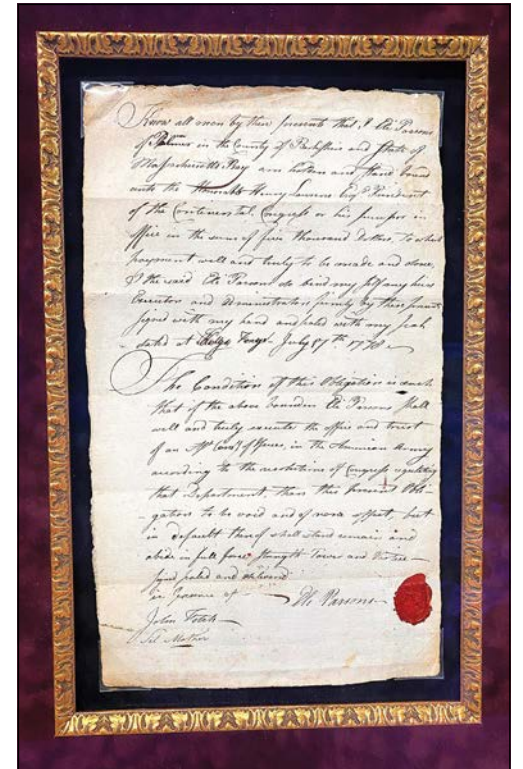 Know all men by these presents that I Eli Parsons
of in the County of and State of
Massachusetts Bay am holden and stand bound
unto the Honorable Henry Laurens Esqr. President
of the Continental Congress or his successor in
office in the sum of five thousand Dollars, To which
payment well and truly to be made and done,
I the said Eli Parsons do bind my self my heirs
Executors and Administrators firmly by these presents
signed with my hand and sealed with my Seal
dated at July th 1778
The Condition of this Obligation is such
that if the above bounden Eli Parsons shall
well and truly execute the office and trust
of an of in the American Army
according to the resolutions of Congress regulating
that Department, then this present Obli-
-gation to be void and of none effect, but
in default thereof shall stand remain and
abide in full force, strength Power and Virtue —
signed sealed and delivered
in presence of — Eli Parsons
John Fitch